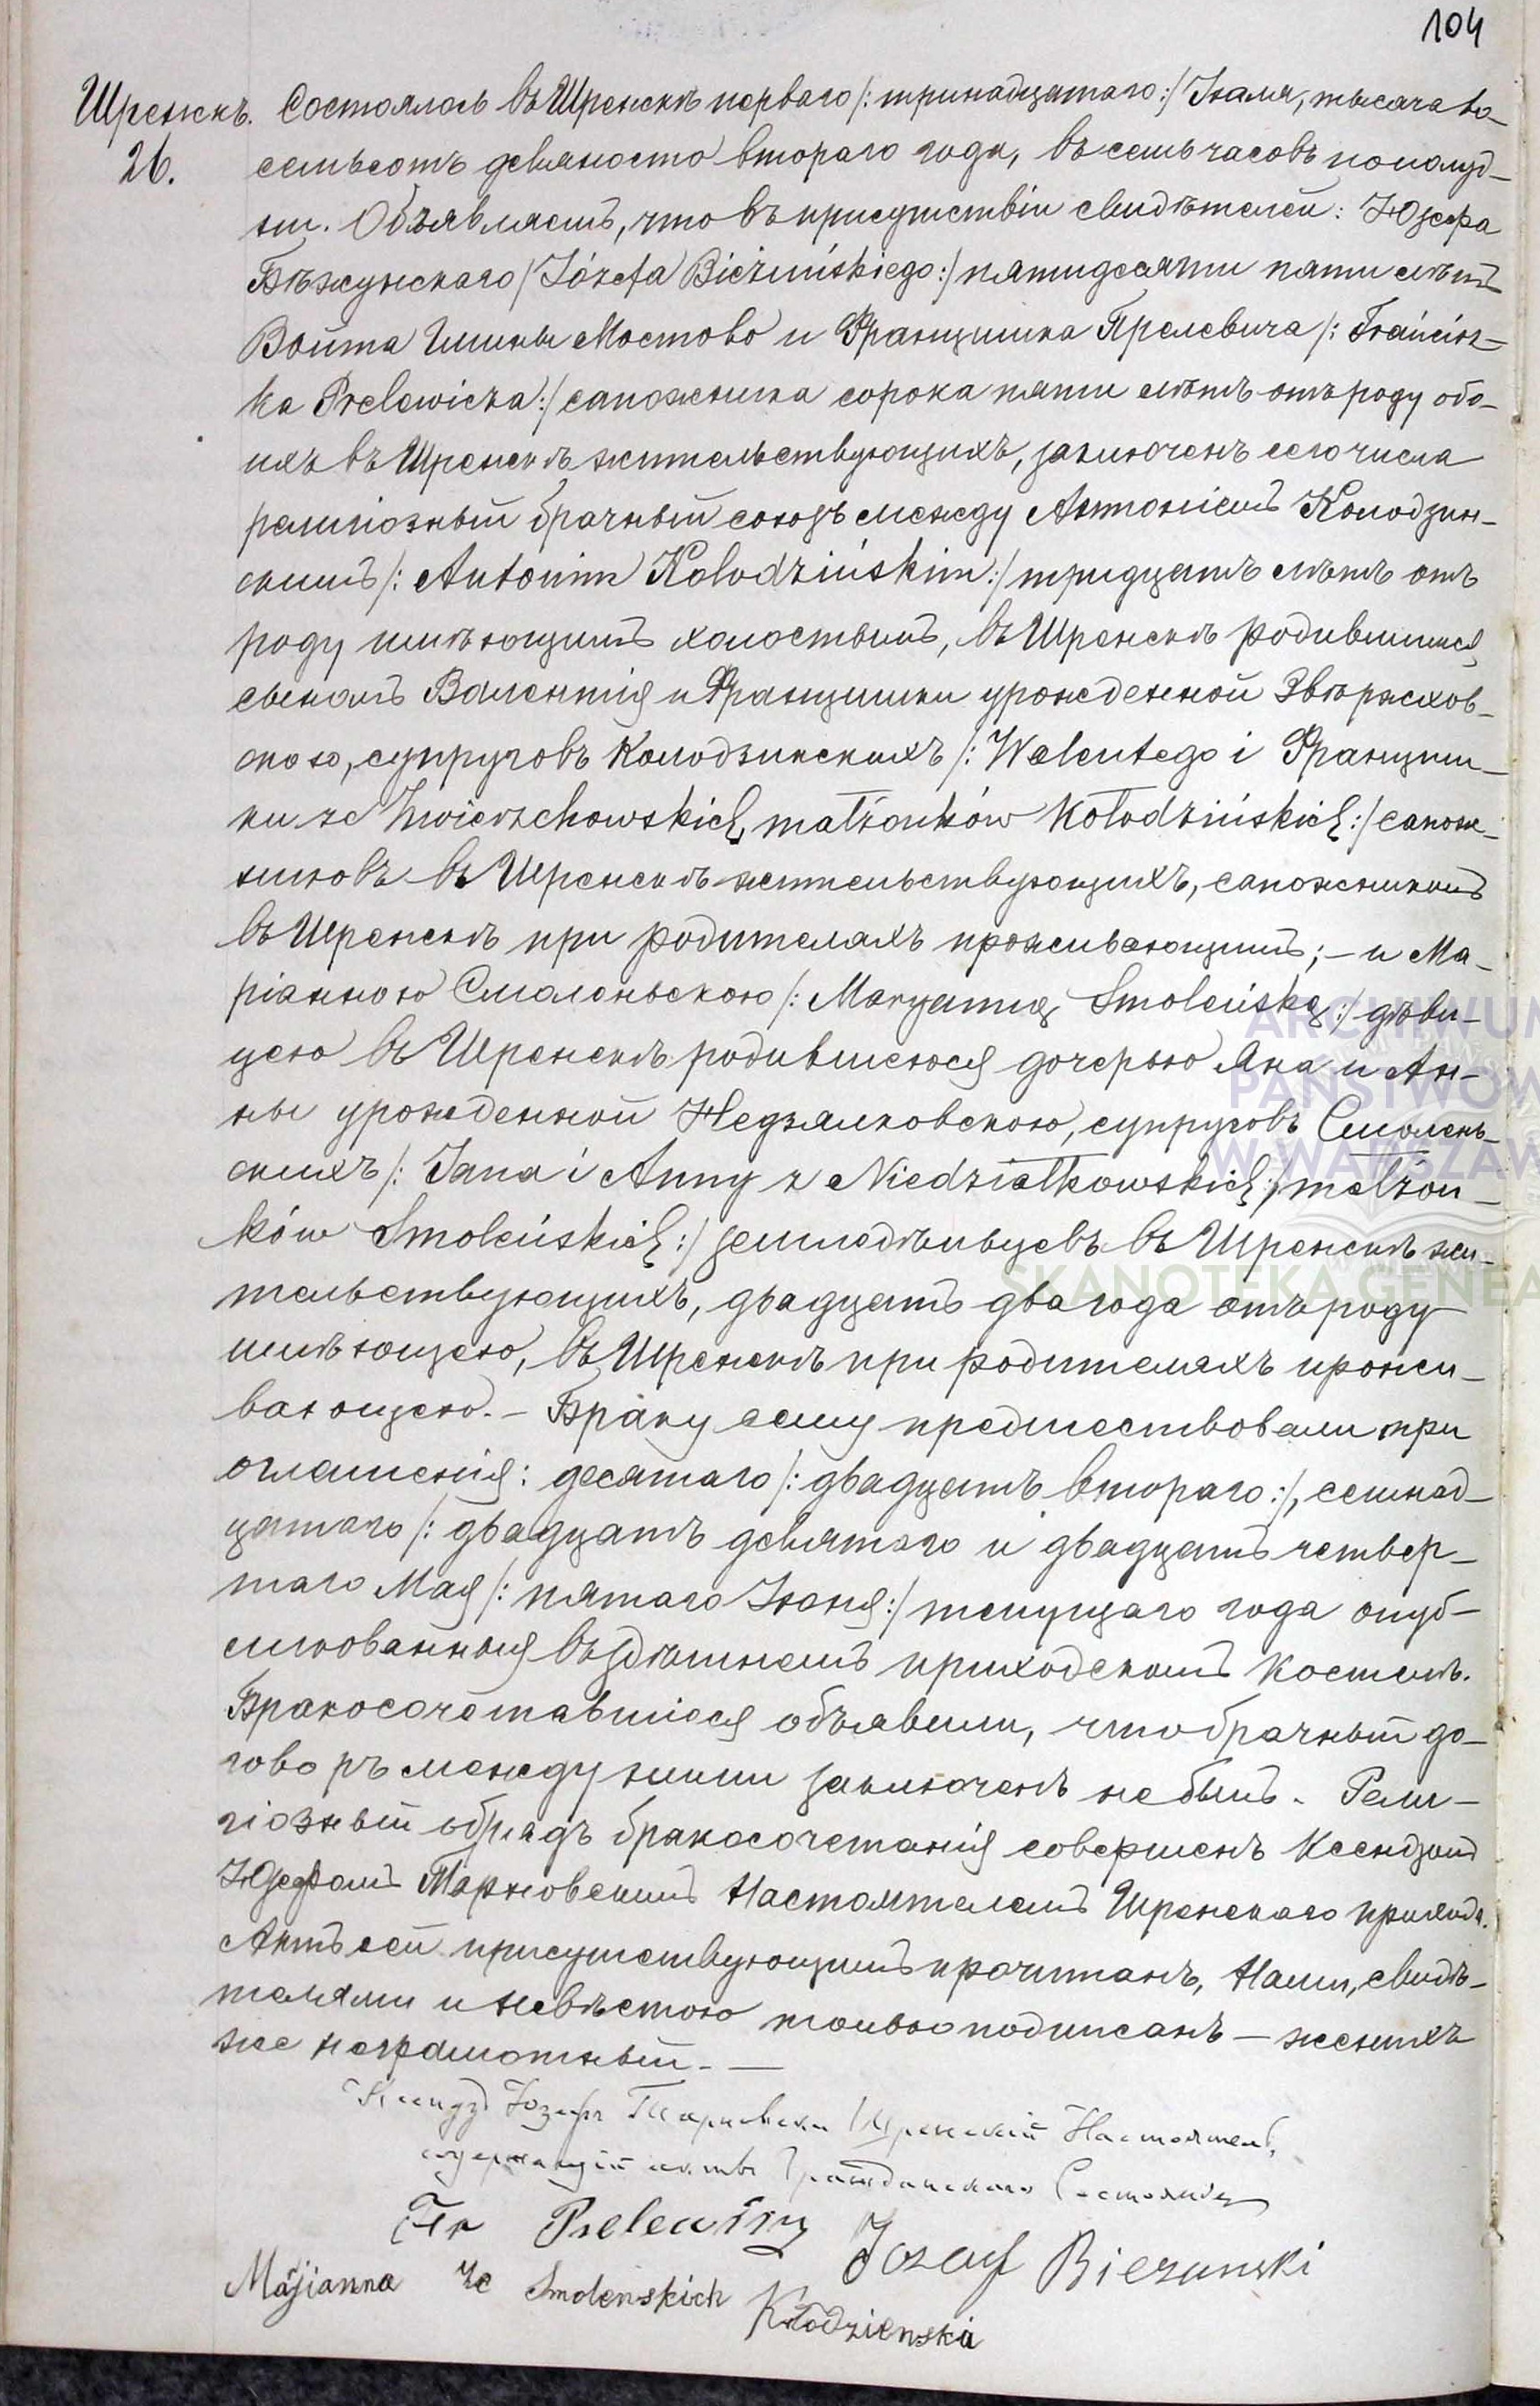 104
Шренскъ. Состоялось въ Шренскѣ перваго /: тринадцатаго :/ Іюля, тысяча во-
26. семьсотъ девяносто втораго года, въ семь часовъ пополуд-
ни. Объявляемъ, что въ присутствіи свидѣтелей: Юзефа
Бѣжунскаго /Józefa Bieżuńskiego:/ пятидесяти пяти лѣтъ
Войта Гмины Мостово и Францишка Прелевича /: Francisz-
ka Prelewicza:/ сапожника сорока пяти лѣтъ отъ роду обо-
ихъ въ Шренскѣ жительствующихъ, заключенъ сего числа
религіозный брачный союзъ между Антоніемъ Колодзин-
скимъ /: Antonim Kołodzińskim:/ тридцать лѣтъ отъ
роду имѣющимъ холостымъ, въ Шренскѣ родившимся,
сыномъ Валентія и Францишки урожденной Звѣржхов-
скою, супруговъ Колодзинскихъ /: Walentego i Францыш-
ки ze Zwierzchowskich małżonków Kołodzińskich:/ сапож-
никовъ въ Шренскѣ жительствующихъ, сапожникомъ
въ Шренскѣ при родителяхъ проживающимъ; – и Ма-
ріанною Смоленьскою /: Maryanną Smoleńską:/ дѣви-
цею въ Шренскѣ родившеюся дочерью Яна и Ан-
ны урожденной Недзялковскою, супруговъ Смолень-
скихъ /: Jana i Anny z Niedziałkowskich:/ małżon-
ków Smoleńskich:/ земледѣльцевъ въ Шренскѣ жи-
тельствующихъ, двадцать два года отъ роду
имѣющею, въ Шренскѣ при родителяхъ прожи-
вающею. – Браку сему предшествовали три
оглашенія: десятаго /: двадцать втораго:/, семнад-
цатаго /: двадцать девятаго и двадцать четвер-
таго Мая /: пятаго Іюня:/ текущаго года опуб-
ликованныя въ здѣшнемъ приходскомъ костелѣ.
Бракосочетавшіеся объявили, что брачный до-
говоръ между ними заключенъ не былъ. Рели-
гіозный обрядъ бракосочетанія совершенъ Ксендзомъ
Юзефомъ Тарновскимъ Настоятелемъ Шренскаго прихода.
Актъ сей присутствующимъ прочитанъ, Нами, свидѣ-
телями и невѣстою только подписанъ – женихъ
же неграмотный. –
Ксендз Юзефъ Тарновски Шренскій Настоятель,
содержащій акты Гражданскаго Состоянія
Fr Prelewicz Jozef Biezunski
Marjianna Ze Smolenskich Kłodzienska
ARCHIWUM
PAŃSTWOW
W WARSZAW
SKANOTEKA.GENEA